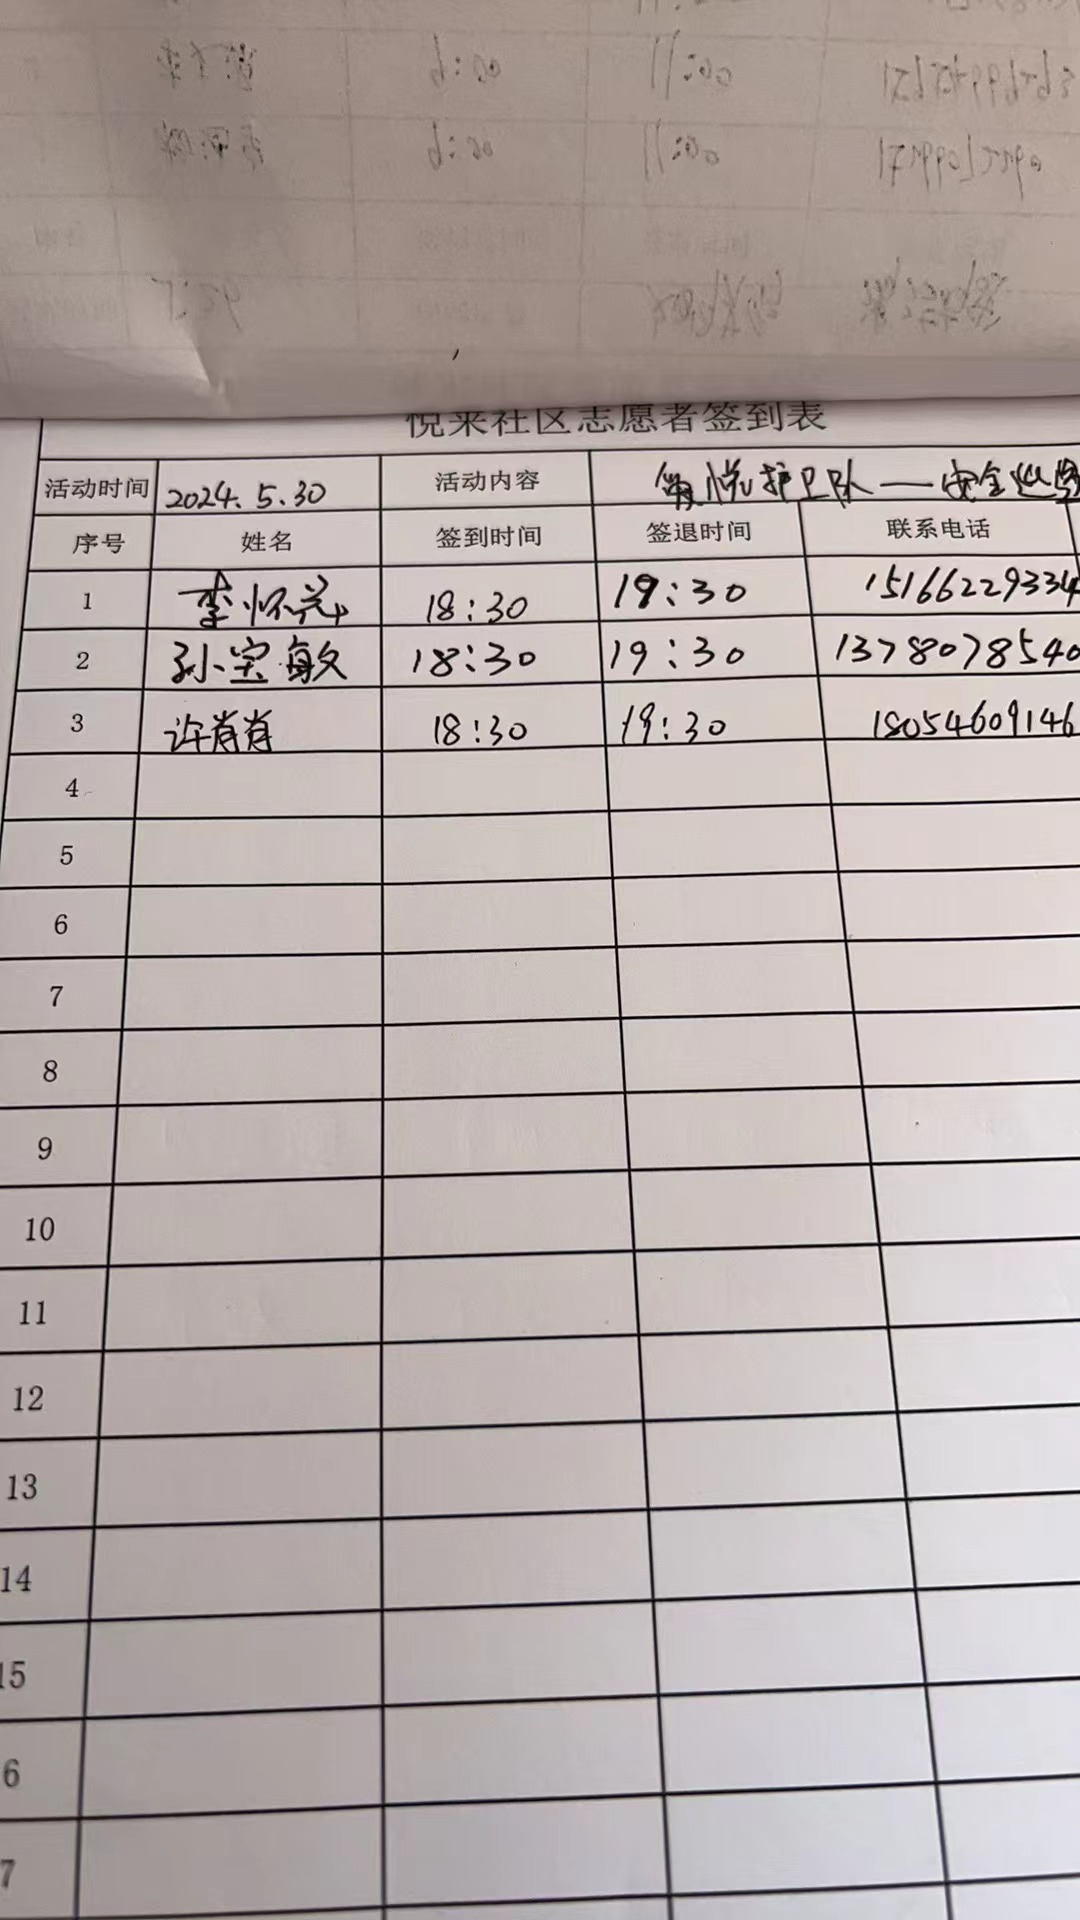 悦来社区志愿者签到表
活动时间 2024.5.30 活动内容 悦护卫队——安全巡
序号 姓名 签到时间 签退时间 联系电话
1 李怀 18:30 19:30 15166229334
2 孙宝敏 18:30 19:30 1378078540
3 许肖肖 18:30 19:30 18054609146
4
5
6
7
8
9
10
11
12
13
14
15
6
7